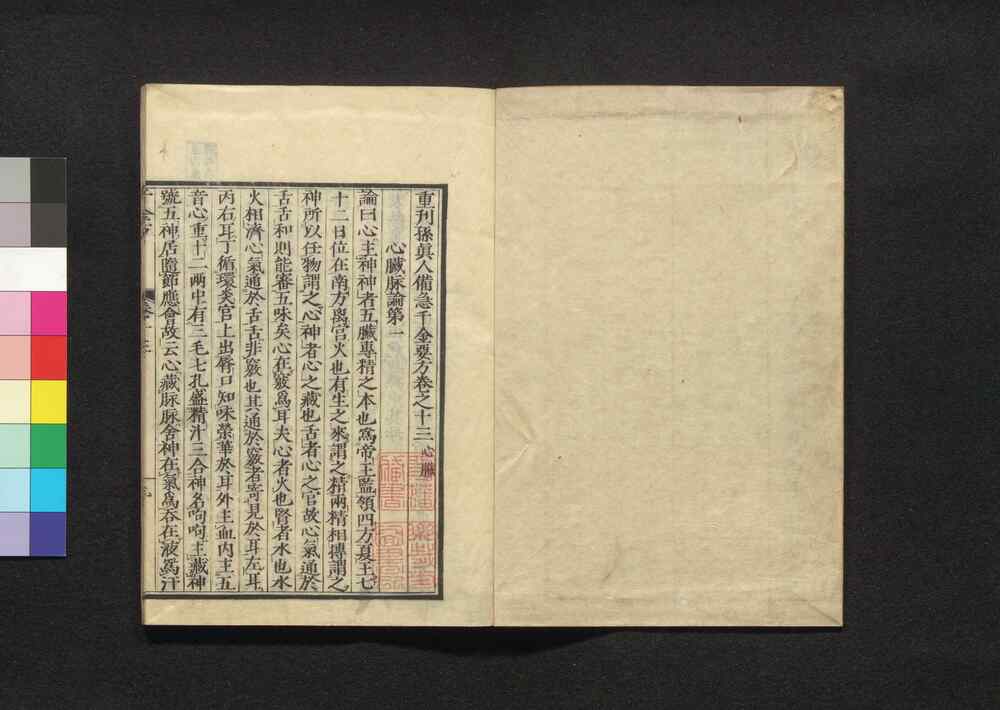 重刋孫眞人備急千金要方卷之十三 心臟
心臟脉論第一
論曰心主神神者五臟專精之本也爲帝王監領四方夏王七
十二日位在南方離宮火也有生之來謂之精兩精相摶謂之
神所以任物謂之心神者心之藏也舌者心之官故心氣通於
舌舌和則能審五味矣心在竅爲耳夫心者火也腎者水也水
火相濟心氣通於舌舌非竅也其通於竅者寄見於耳左耳
丙右耳丁循環炎宮上出唇口知味榮華於耳外主血內主五
音心重十二两中有三毛七孔盛精汁三合神名呴呴主藏神
號五神居隨節應會故云心藏脉脉舍神在氣爲吞在液爲汗